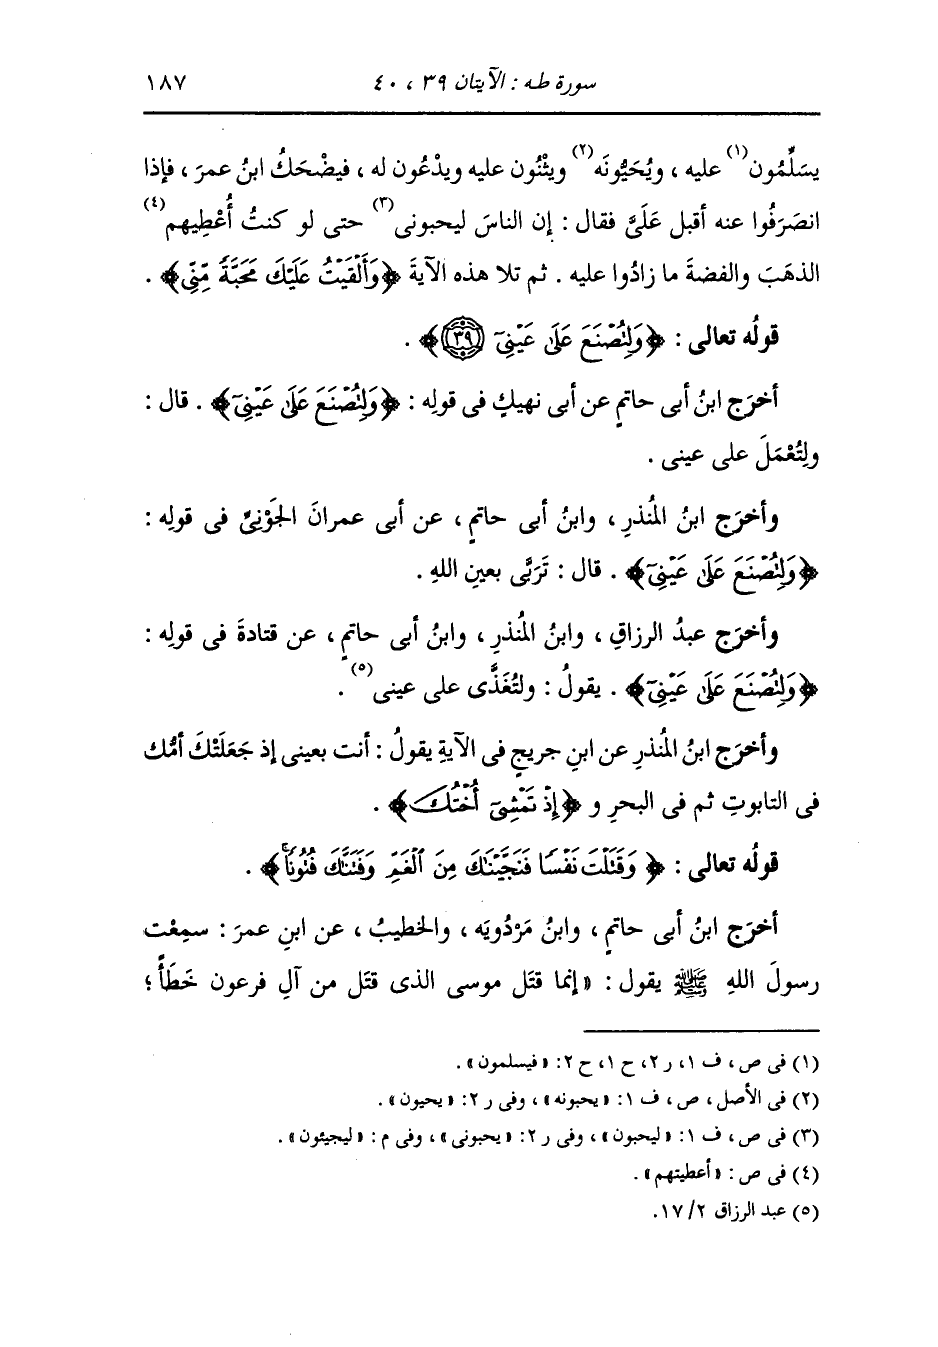 سورة طه : الآيتان ٣٩ ، ٤٠ ١٨٧
يسَلِّمُون(١) عليه ، ويُحَيُّونَه(٢) ويثْنُون عليه ويدْعُون له ، فيضْحَكُ ابنُ عمرَ ، فإذا
انصَرَفُوا عنه أقبل عَلَىَّ فقال : إن الناسَ ليحبونى(٣) حتى لو كنتُ أُعْطِيهم(٤)
الذهَبَ والفضةَ ما زادُوا عليه . ثم تلا هذه الآيةَ ﴿وَأَلْقَيْتُ عَلَيْكَ مَحَبَّةً مِّنِّى﴾ .
قولُه تعالى : ﴿وَلِتُصْنَعَ عَلَىٰ عَيْنِىٓ ٣٩﴾ .
أخرَج ابنُ أبى حاتمٍ عن أبى نهيكٍ فى قولِه : ﴿وَلِتُصْنَعَ عَلَىٰ عَيْنِىٓ﴾ . قال :
ولِتُعْمَلَ على عينى .
وأخرَج ابنُ المُنذرِ ، وابنُ أبى حاتمٍ ، عن أبى عمرانَ الجَوْنِىِّ فى قولِه :
﴿وَلِتُصْنَعَ عَلَىٰ عَيْنِىٓ﴾ . قال : تَرَبَّى بعينِ اللهِ .
وأخرَج عبدُ الرزاقِ ، وابنُ المُنذرِ ، وابنُ أبى حاتمٍ ، عن قتادةَ فى قولِه :
﴿وَلِتُصْنَعَ عَلَىٰ عَيْنِىٓ﴾ . يقولُ : ولتُغَذَّى على عينى(٥) .
وأخرَج ابنُ المُنذرِ عن ابنِ جريجٍ فى الآيةِ يقولُ : أنت بعينى إذ جَعَلَتْكَ أمُّك
فى التابوتِ ثم فى البحرِ و ﴿إِذْ تَمْشِىٓ أُخْتُكَ﴾ .
قولُه تعالى : ﴿وَقَتَلْتَ نَفْسًا فَنَجَّيْنَٰكَ مِنَ ٱلْغَمِّ وَفَتَنَّٰكَ فُتُونًاۚ﴾ .
أخرَج ابنُ أبى حاتمٍ ، وابنُ مَرْدُويَه ، والخطيبُ ، عن ابنِ عمرَ : سمِعْت
رسولَ اللهِ ﷺ يقول : «إنما قتَل موسى الذى قتَل من آلِ فرعون خَطَأً ؛
(١) فى ص ، ف ١، ر ٢، ح ١، ح ٢: «فيسلمون» .
(٢) فى الأصل ، ص ، ف ١: «يحبونه» ، وفى ر ٢: «يحيون» .
(٣) فى ص ، ف ١: «ليحبون» ، وفى ر ٢: «يحبونى» ، وفى م : «ليجيئون» .
(٤) فى ص : «أعطيتهم» .
(٥) عبد الرزاق ٢/ ١٧.